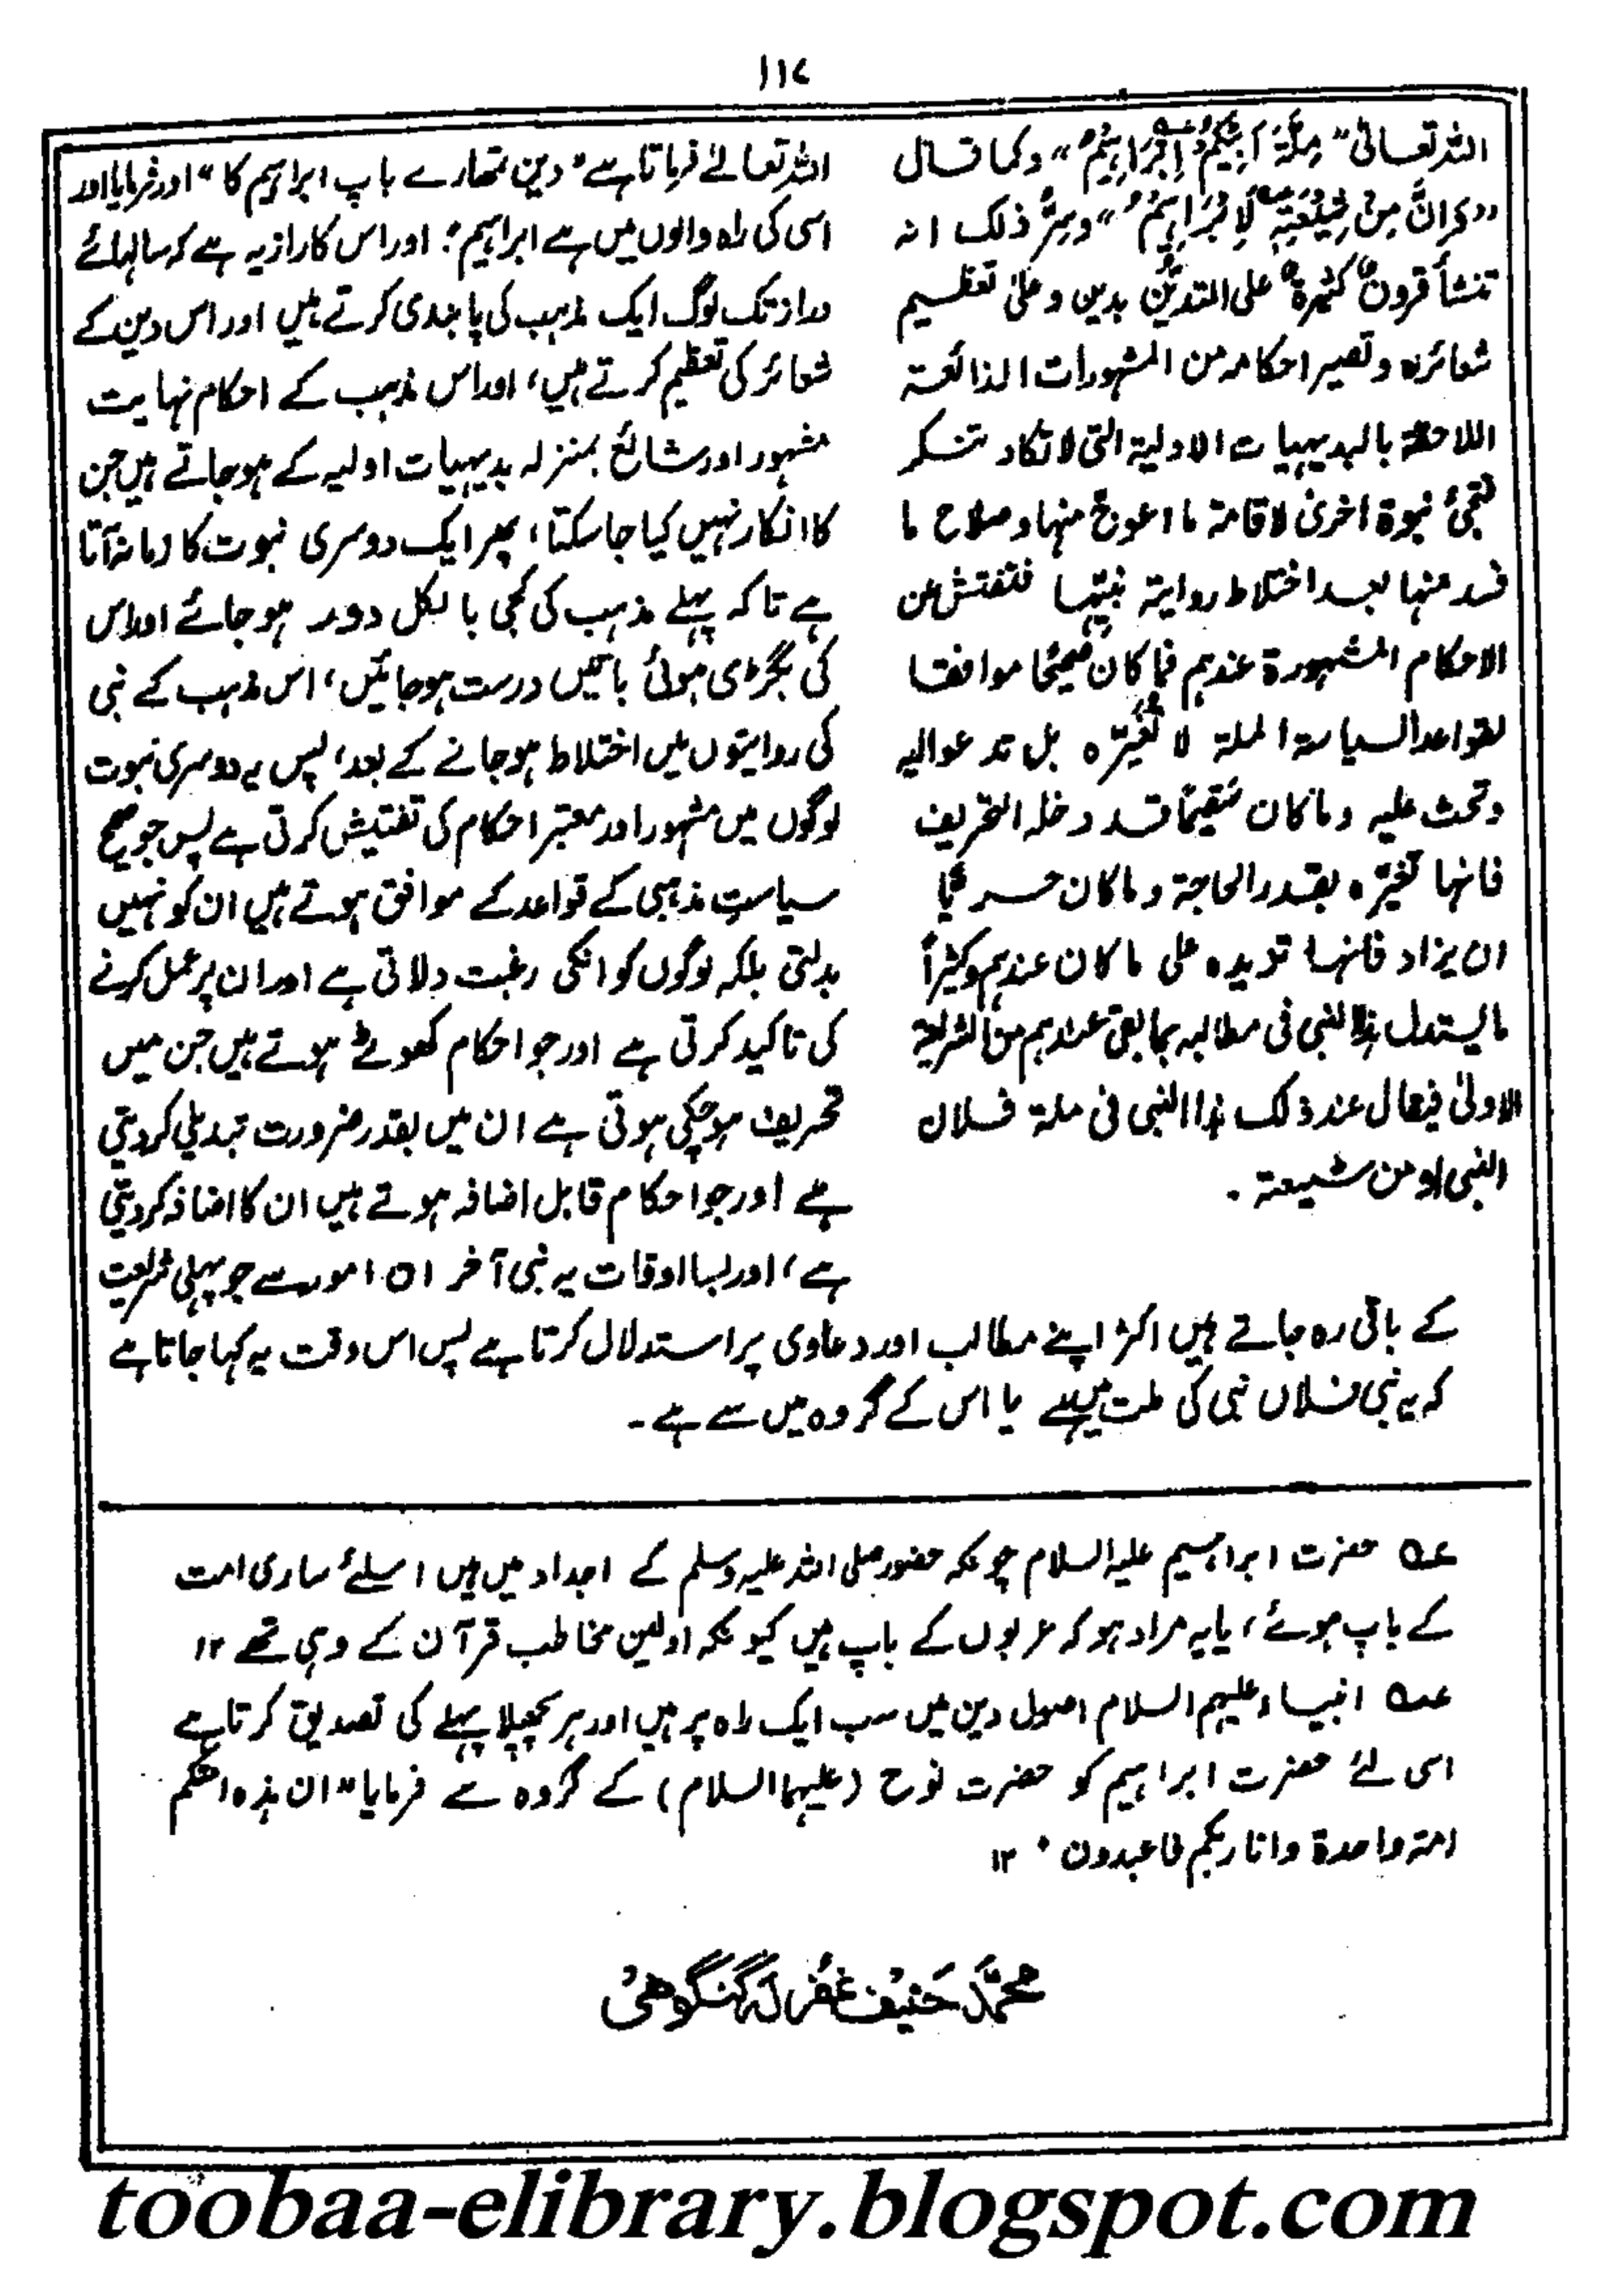 ۱۱۷
اللہ تعالیٰ "مِلَّةَ اَبِیْکُمْ اِبْرَاہِیْمَ" وکما قال
"وَاِنَّ مِنْ شِیْعَتِہٖ لَاِبْرَاہِیْمَ" وسِرُّ ذلک انہ
تنشأ قرونٌ کثیرةٌ علی التدیُّن بدین وعلیٰ تعظیم
شعائرہ وتصیر احکامہ من المشہورات الذائعة
اللاحقة بالبدیہیات الاولیة التی لا تکاد تنکر
فتجئ نبوة اخریٰ لاقامة ما اعوج منہا وصلاح ما
فسد منہا بعد اختلاط روایة نبیّہا فتفتش عن
الاحکام المشہورة عندہم فما کان صحیحًا موافقا
لقواعد السیاسة الملة لا تُغیّرہ بل تدعو الیہ
وتحث علیہ وما کان سقیمًا قد دخلہ التحریف
فانہا تُغیّرہ بقدر الحاجة وما کان حریًّا
ان یزاد فانہا تزیدہ علی ما کان عندہم وکثیراً
ما یستدل ہذا النبی فی مطالبہ بما بقی عندہم من الشریعة
الاولیٰ فیقال عند ذلک ہذا النبی فی ملة فلان
النبی او من شیعتہ .
اللہ تعالےٰ فرماتا ہے "دین تمھارے باپ ابراہیم کا" اور فرمایا اور
اسی کی راہ والوں میں ہے ابراہیم" اور اس کا راز یہ ہے کہ سالہائے
دراز تک لوگ ایک مذہب کی پابندی کرتے ہیں اور اس دین کے
شعائر کی تعظیم کرتے ہیں، اور اس مذہب کے احکام نہایت
مشہور اور شائع بمنزلہ بدیہیات اولیہ کے ہو جاتے ہیں جن
کا انکار نہیں کیا جا سکتا، پھر ایک دوسری نبوت کا زمانہ آتا
ہے تاکہ پہلے مذہب کی کجی بالکل دور ہو جائے اور اس
کی بگڑی ہوئی باتیں درست ہو جائیں، اس مذہب کے نبی
کی روایتوں میں اختلاط ہو جانے کے بعد، پس یہ دوسری نبوت
لوگوں میں مشہور اور معتبر احکام کی تفتیش کرتی ہے پس جو صحیح
سیاستِ مذہبی کے قواعد کے موافق ہوتے ہیں ان کو نہیں
بدلتی بلکہ لوگوں کو انکی رغبت دلاتی ہے اور ان پر عمل کرنے
کی تاکید کرتی ہے اور جو احکام کھوٹے ہوتے ہیں جن میں
تحریف ہو چکی ہوتی ہے ان میں بقدر ضرورت تبدیلی کر دیتی
ہے اور جو احکام قابل اضافہ ہوتے ہیں ان کا اضافہ کر دیتی
ہے، اور بسا اوقات یہ نبی آخر ان امور سے جو پہلی شریعت
کے باقی رہ جاتے ہیں اکثر اپنے مطالب اور دعاوی پر استدلال کرتا ہے پس اس وقت یہ کہا جاتا ہے
کہ یہ نبی فلاں نبی کی ملت میں ہے یا اس کے گروہ میں سے ہے۔
عہ حضرت ابراہیم علیہ السلام چونکہ حضور صلی اللہ علیہ وسلم کے اجداد میں ہیں اسلئے ساری امت
کے باپ ہوئے، یا یہ مراد ہو کہ عربوں کے باپ ہیں کیونکہ اولین مخاطب قرآن کے وہی تھے ۱۲
عہ انبیاء علیہم السلام اصول دین میں سب ایک راہ پر ہیں اور ہر پچھلا پہلے کی تصدیق کرتا ہے
اسی لئے حضرت ابراہیم کو حضرت نوح (علیہما السلام) کے گروہ سے فرمایا "ان ہذہ امتکم
امة واحدة وانا ربکم فاعبدون" ۱۲
محمَّد حَنِیْف غُفِرَ لَہٗ گنگوھیْ
toobaa-elibrary.blogspot.com